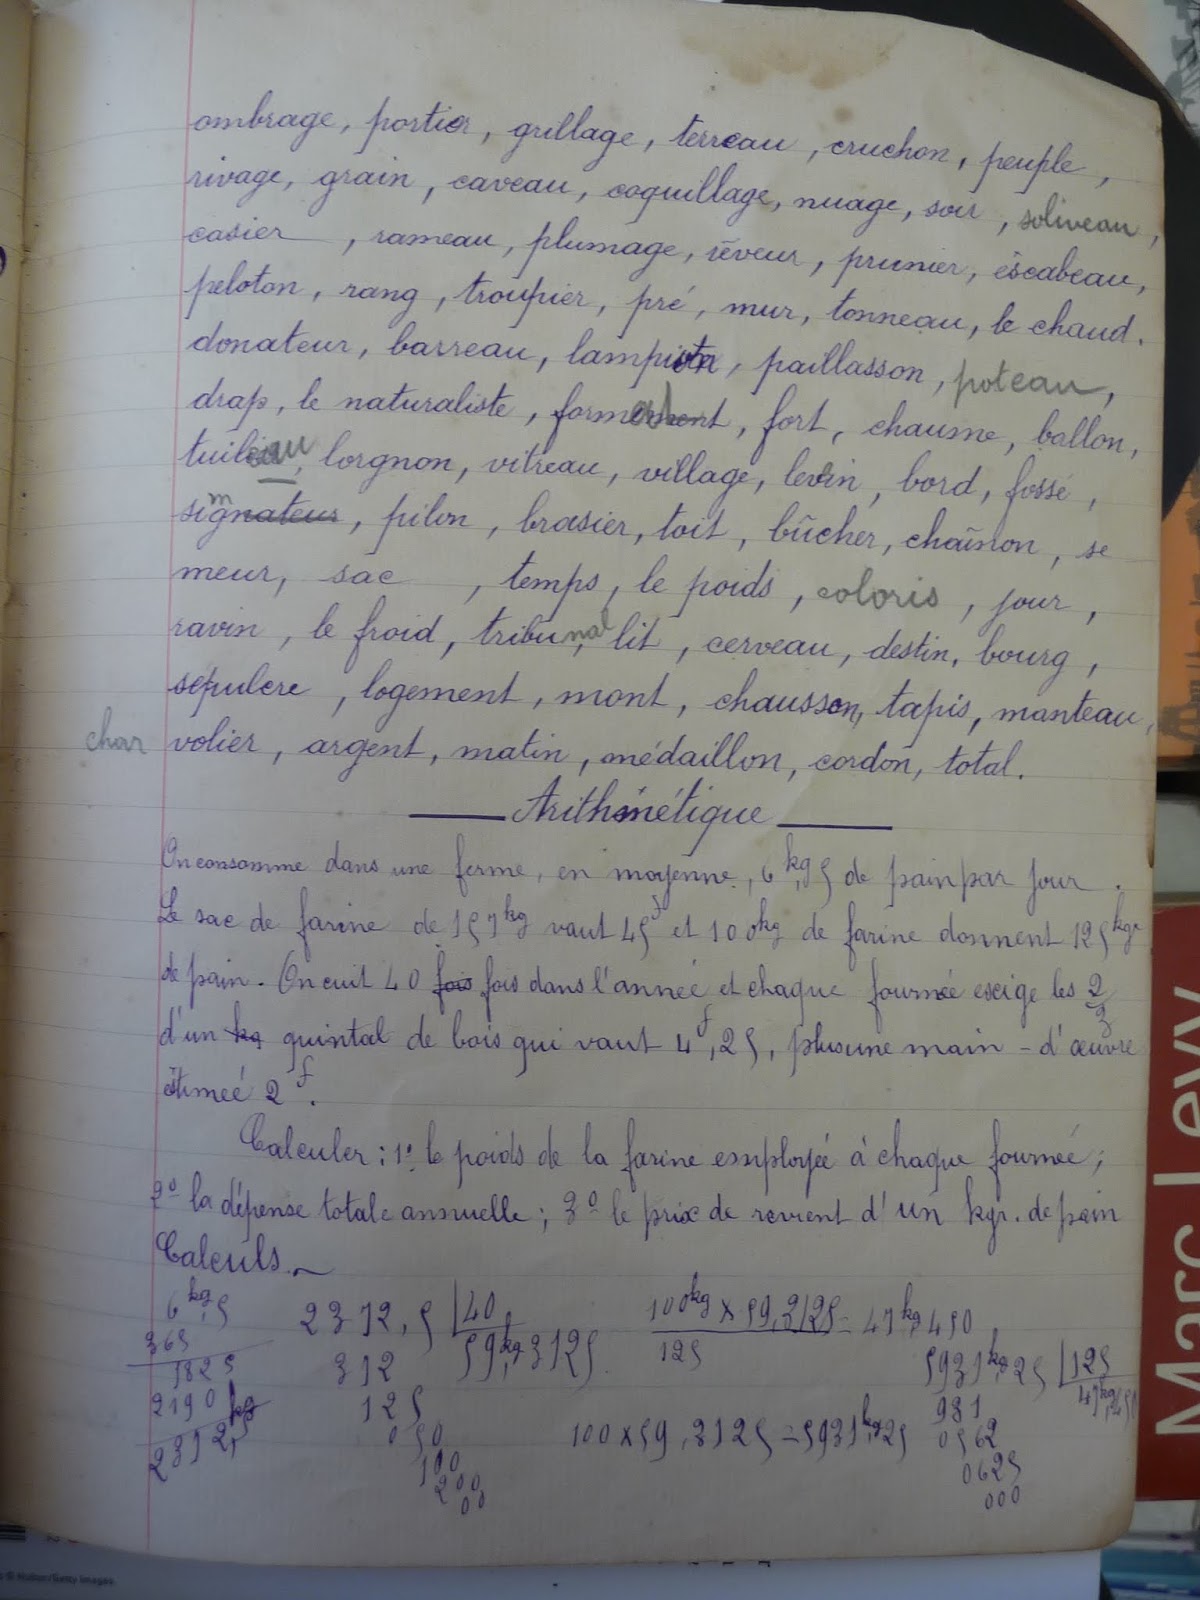 ombrage, portier, grillage, terreau, cruchon, peuple,
rivage, grain, caveau, coquillage, nuage, soir, soliveau,
casier , rameau, plumage, rêveur, prunier, éscabeau,
peloton, rang, troupier, pré, mur, tonneau, le chaud.
donateur, barreau, lampion, paillasson, poteau,
drap, le naturaliste, format, fort, chaume, ballon,
tuileau, lorgnon, vitreau, village, levin, bord, fossé,
signateur, pilon, brasier, toit, bûcher, chaînon, se
meur, sac , temps, le poids, coloris, jour,
ravin, le froid, tribunal, lit, cerveau, destin, bourg,
sépulcre, logement, mont, chausson, tapis, manteau,
char volier, argent, matin, médaillon, cordon, total.
Arithmétique
On consomme dans une ferme, en moyenne, 6kg,5 de pain par jour.
Le sac de farine de 157kg vaut 45f et 100kg de farine donnent 125kgr
de pain. On cuit 40 fois fois dans l'année et chaque fournée exige les 2/3
d'un kg quintal de bois qui vaut 4f,25, plus une main-d'œuvre
éstimeé 2f.
Calculer : 1° le poids de la farine employée à chaque fournée ;
2° la dépense totale annuelle ; 3° le prix de revient d'un kgr. de pain
Calculs.
6kg,5 2372,5 | 40 100kg x 59,3125 = 47kg,450
365 312 59kg,3125 125 5931kg,25 | 125
1825 125 981 47kg,450
2190 kg 050 100 x 59,3125 = 5931kg,25 0562
2372,5 100 0625
200 000
00
Marc Levy
© Hulton/Getty Images